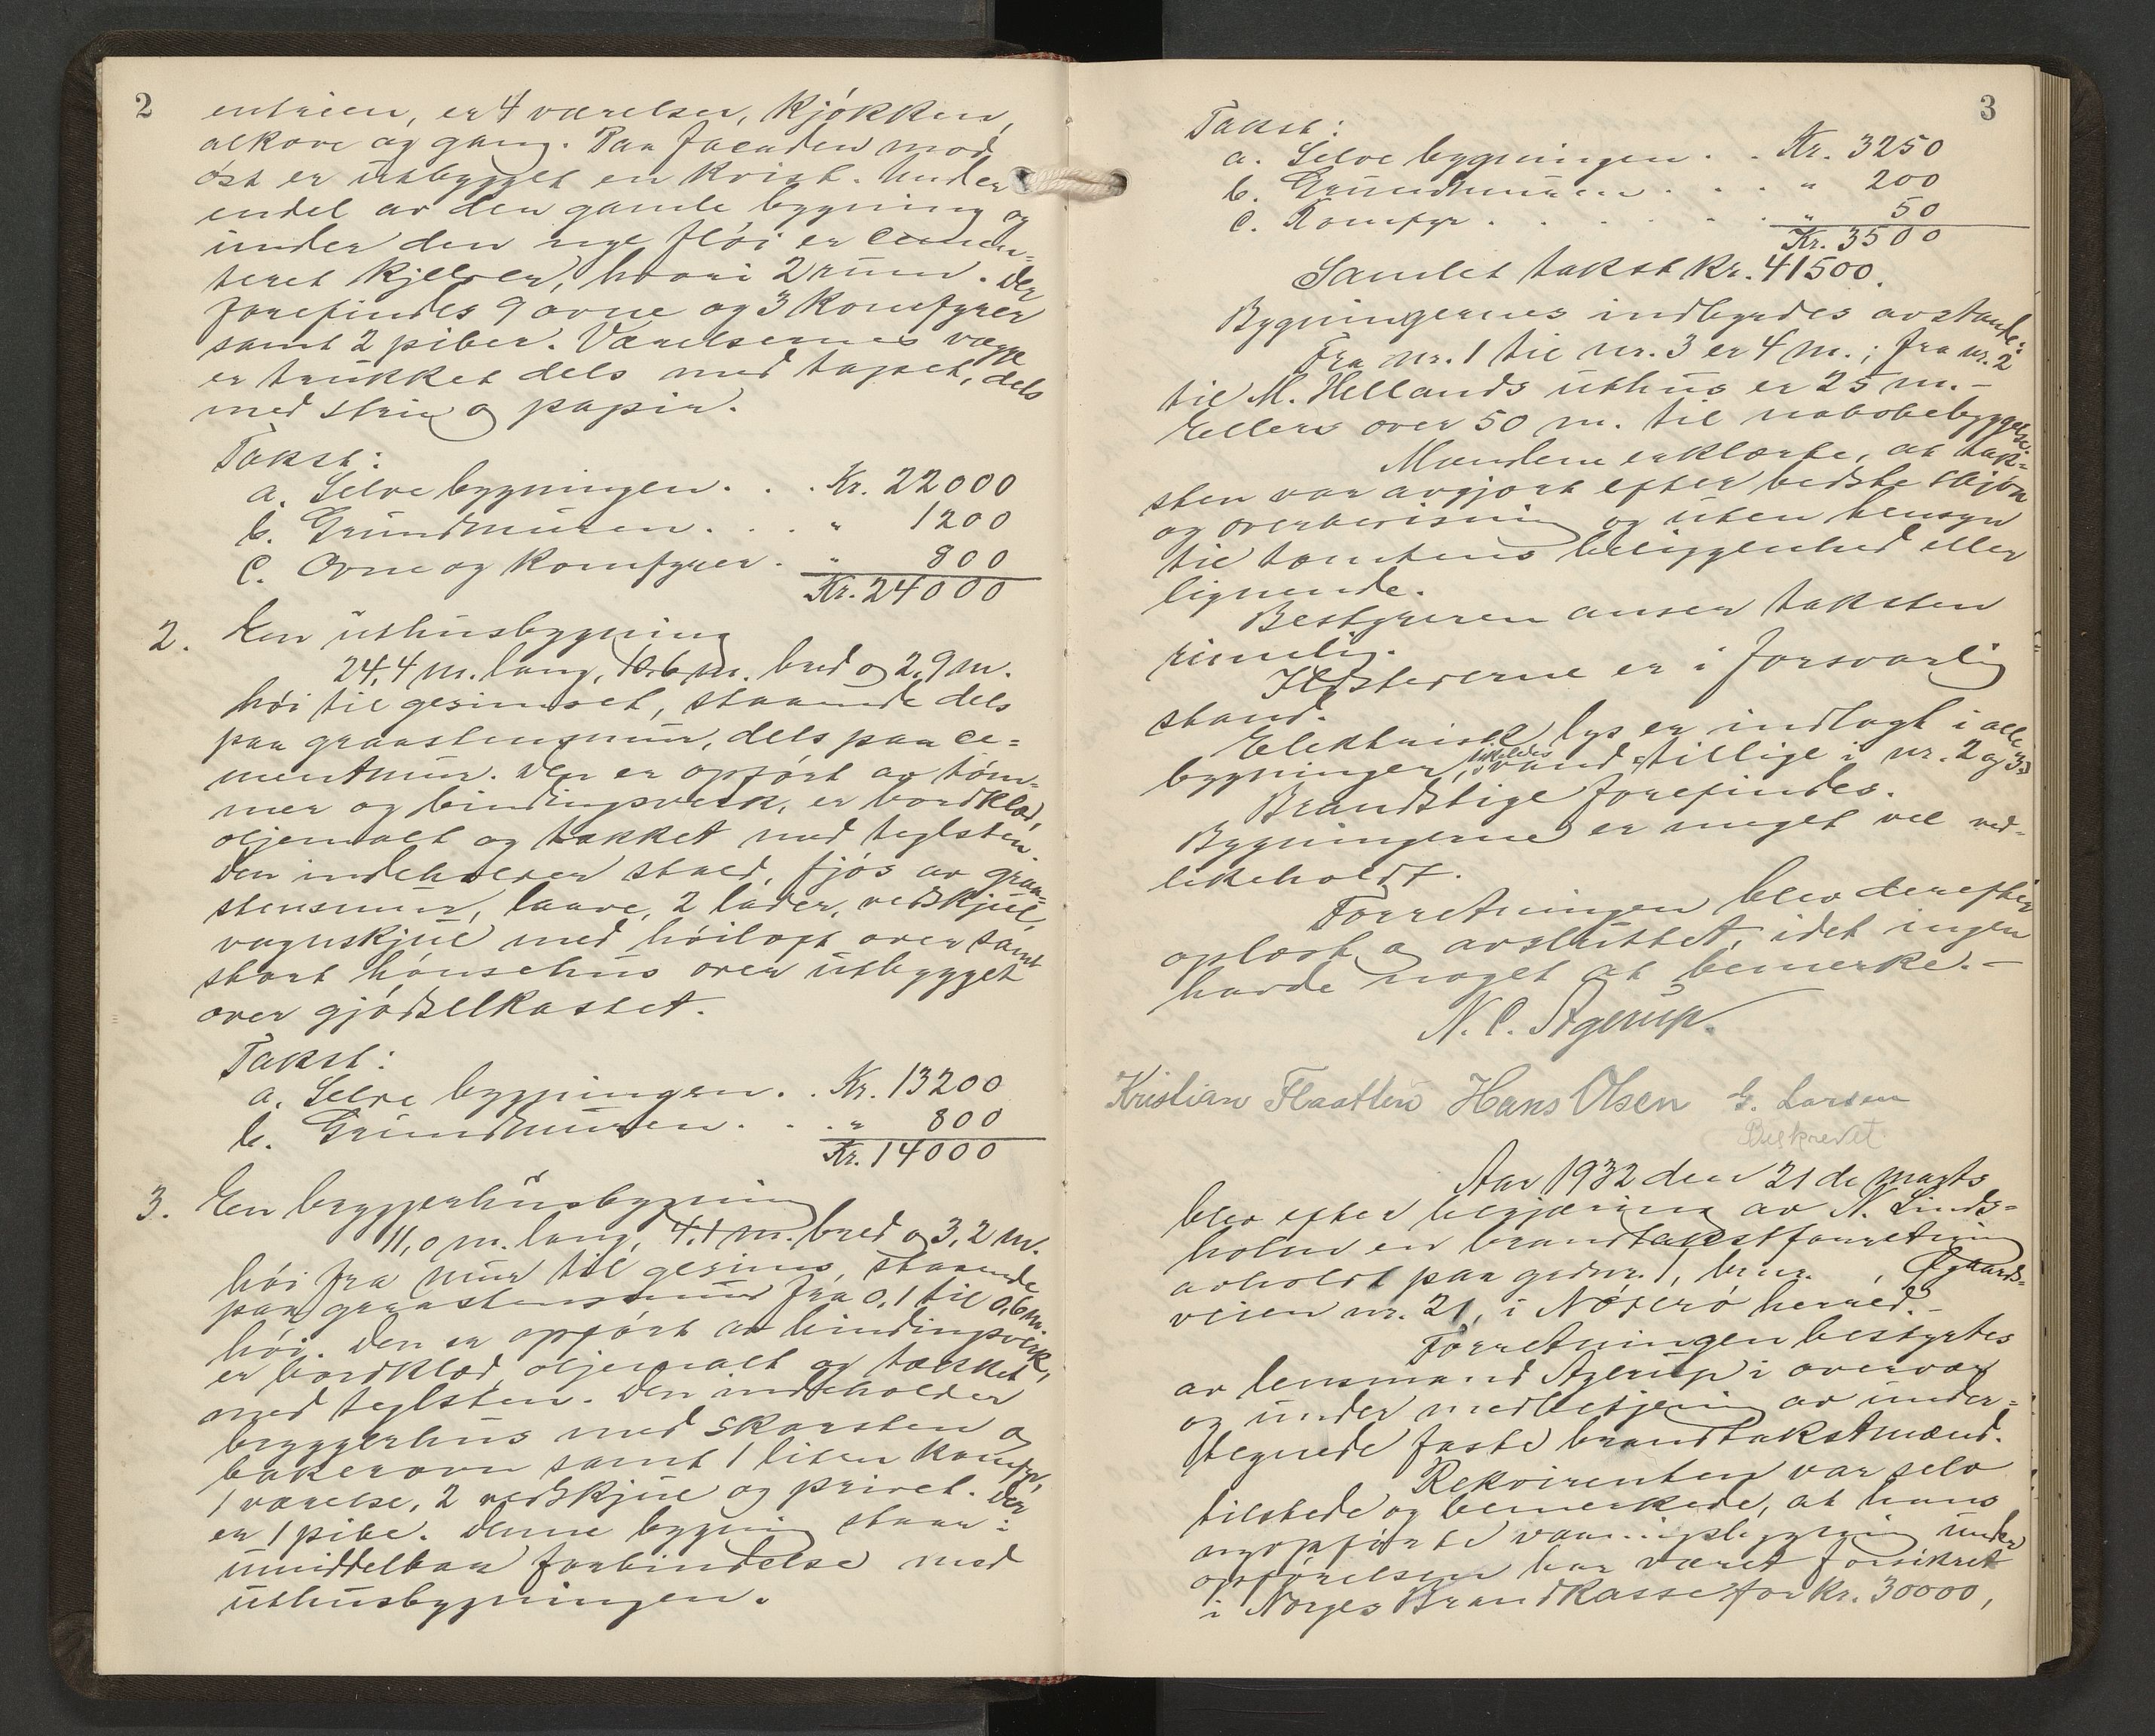 2
entréen, er 4 værelser, kjøkken,
alkove og gang. Paa facaden mod
øst er utbygget en kvist. Under
endel av den gamle bygning og
under den nye fløi er cemen-
teret kjelder, hvori 2 rum. Der
forefindes 9 ovne og 3 komfyrer
samt 2 piber. Værelsernes vægge
er trukket dels med tapet, dels
med strie og papir.
Takst:
a. Selve bygningen . . . Kr. 22000
b. Grundmuren . . . " 1200
c. Ovne og komfyrer . " 800
Kr. 24000
2. En uthusbygning
24,4 m. lang, 10,6 m. bred og 2,9 m.
høi til gesimset, staaende dels
paa graastensmur, dels paa ce=
mentmur. Den er opført av tøm-
mer og bindingsverk, er bordklæd,
oljemalt og tækket med teglsten.
Den indeholder stald, fjøs av graa-
stensmur, laave, 2 lader, vedskjul,
vognskjul med høiloft over samt
stort hønsehus over utbygget
over gjødselkastet.
Takst:
a. Selve bygningen . . Kr. 13200
b. Grundmuren . . . " 800
Kr. 14000
3. En bryggerhusbygning
11,0 m. lang, 4,1 m. bred og 3,2 m.
høi fra mur til gesims, staaende
paa graastensmur fra 0,1 til 0,6 m.
høi. Den er opført av bindingsverk,
er bordklæd, oljemalt og tækket
med teglsten. Den indeholder
bryggerhus med skorsten og
bakerovn samt 1 liten komfyr,
1 værelse, 2 vedskjul og privet. Der
er 1 pibe. Denne bygning staar i
umiddelbar forbindelse med
uthusbygningen.
3
Takst:
a. Selve bygningen . . Kr. 3250
b. Grundmuren . . . " 200
c. Komfyr . . . . . " 50
Kr. 3500
Samlet takst kr. 41500.
Bygningernes indbyrdes avstande:
Fra nr. 1 til nr. 3 er 4 m.; fra nr. 2
til M. Hellands uthus er 25 m. –
Ellers over 50 m. til nabobebyggelse.
Mændene erklærte, at tak-
sten var avgjort efter bedste skjøn
og overbevisning og uten hensyn
til tomtens beliggenhed eller
lignende.
Bestyreren anser taksten
rimelig.
Ildstederne er i forsvarlig
stand.
Elektrisk lys er indlagt i alle
bygninger, likeledes vand tillige i nr. 2 og 3.
Brandstige forefindes.
Bygningerne er meget vel ved-
likeholdt.
Forretningen blev derefter
oplæst og avsluttet, idet ingen
havde noget at bemerke. –
N. C. Agerup.
Kristian Flaatten Hans Olsen G. Larsen
Beskrevet
Aar 1932 den 21de marts
blev efter begjæring av N. Linds=
holm en brandtakstforretning
avholdt paa gardsnr. 1, brnr. , Øgaards-
veien nr. 21, i Nøterø herred. –
Forretningen bestyrtes
av lensmand Agerup i overvær
og under medbetjening av under=
tegnede faste brandtakstmænd.
Rekvirenten var selv
tilstede og bemerkede, at hans
nyopførte vaaningsbygning under
opførelsen har været forsikret
i Norges Brandkasse for kr. 30000,